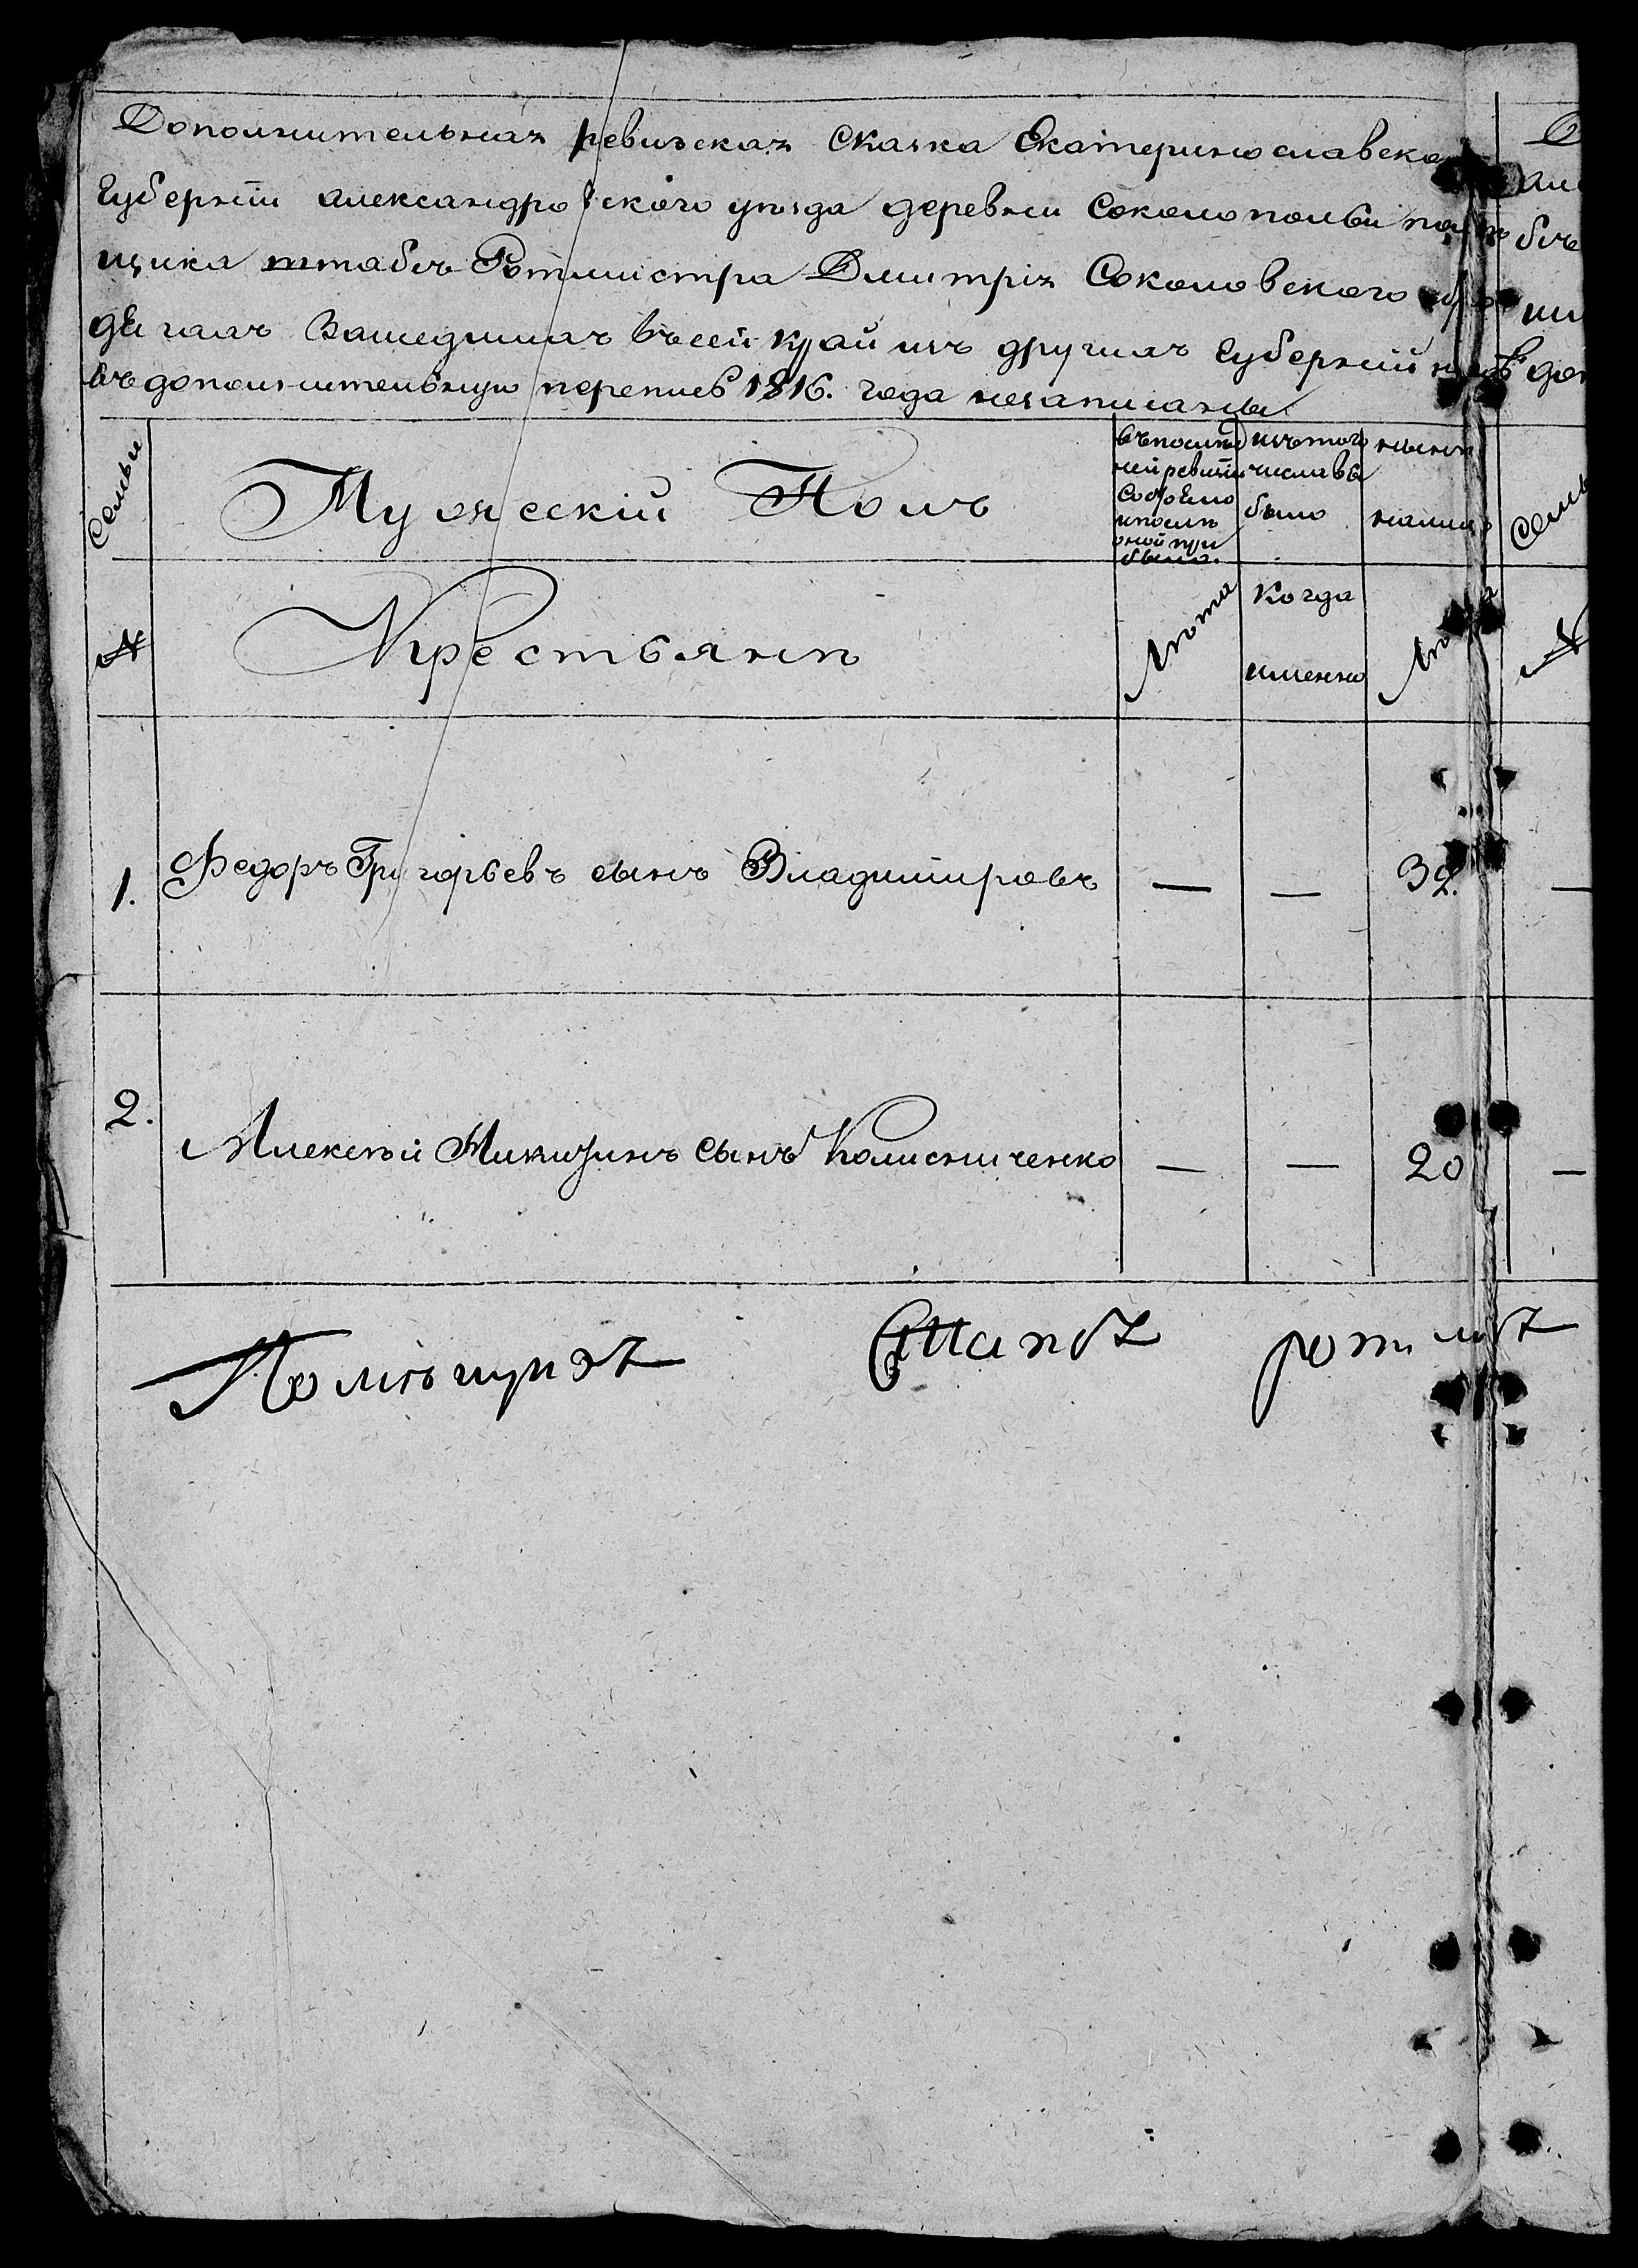 Дополнительная ревизская Сказка Екатеринославско
Губерніи александровского уезда деревни Соколополья
щика штабъ Ротмистра Дмитрія Соколовского
Зашедшихъ въ сей край изъ другихъ Губерній
въ дополнительную перепись 1816. года незаписаны.
Семьи
Мужескій Полъ
въ последней ревизіи состояло и после оной прибыло.
изъ того числа выбыло
ныне налицо
Семь
№
Крестьяне
Лета
Когда именно
Лета
№
1.
Федоръ Григорьевъ сынъ Владиміровъ
—
—
32.
—
2.
Алексей Никитинъ сынъ Колисниченко
—
—
20
—
Помещикъ Штапсъ рот